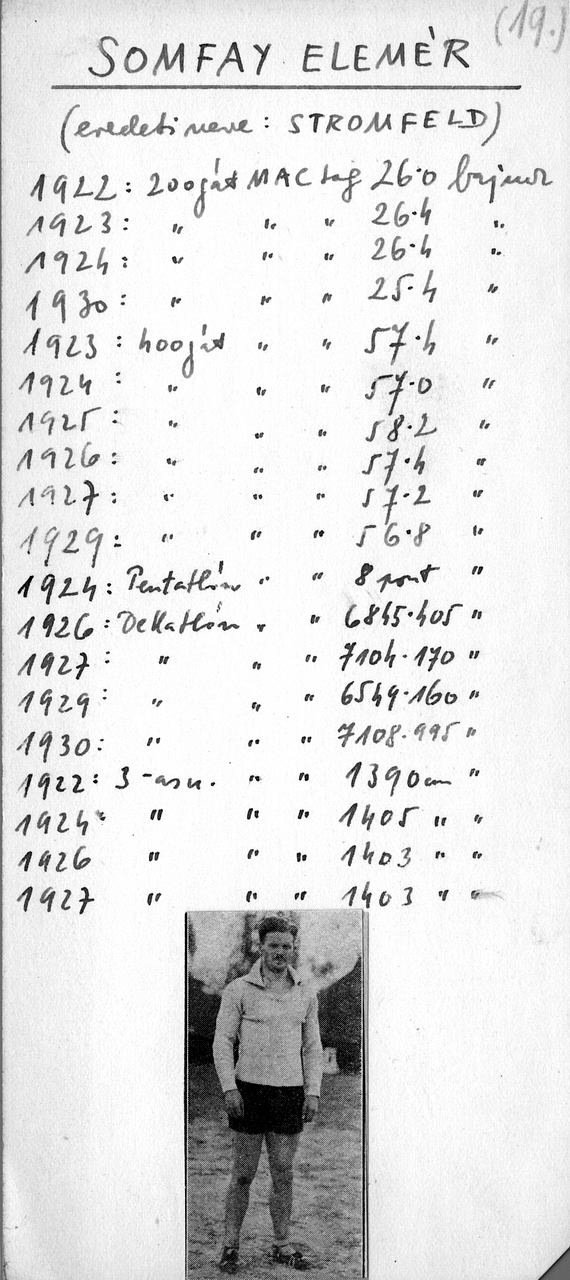 (19.)
SOMFAY ELEMÉR
(eredeti neve: STROMFELD)
1922: 200 gát MAC tag 26·0 bajnok
1923: " " " 26·4 "
1924: " " " 26·4 "
1930: " " " 25·4 "
1923: 400 gát " " 57·4 "
1924: " " " 57·0 "
1925: " " " 58·2 "
1926: " " " 57·4 "
1927: " " " 57·2 "
1929: " " " 56·8 "
1924: Pentatlon " " 8 pont "
1926: Dekatlon " " 6845·405 "
1927: " " " 7104·170 "
1929: " " " 6549·160 "
1930: " " " 7108·995 "
1922: 3-asu. " " 1390 cm "
1924: " " " 1405 " "
1926 " " " 1403 " "
1927 " " " 1403 " "